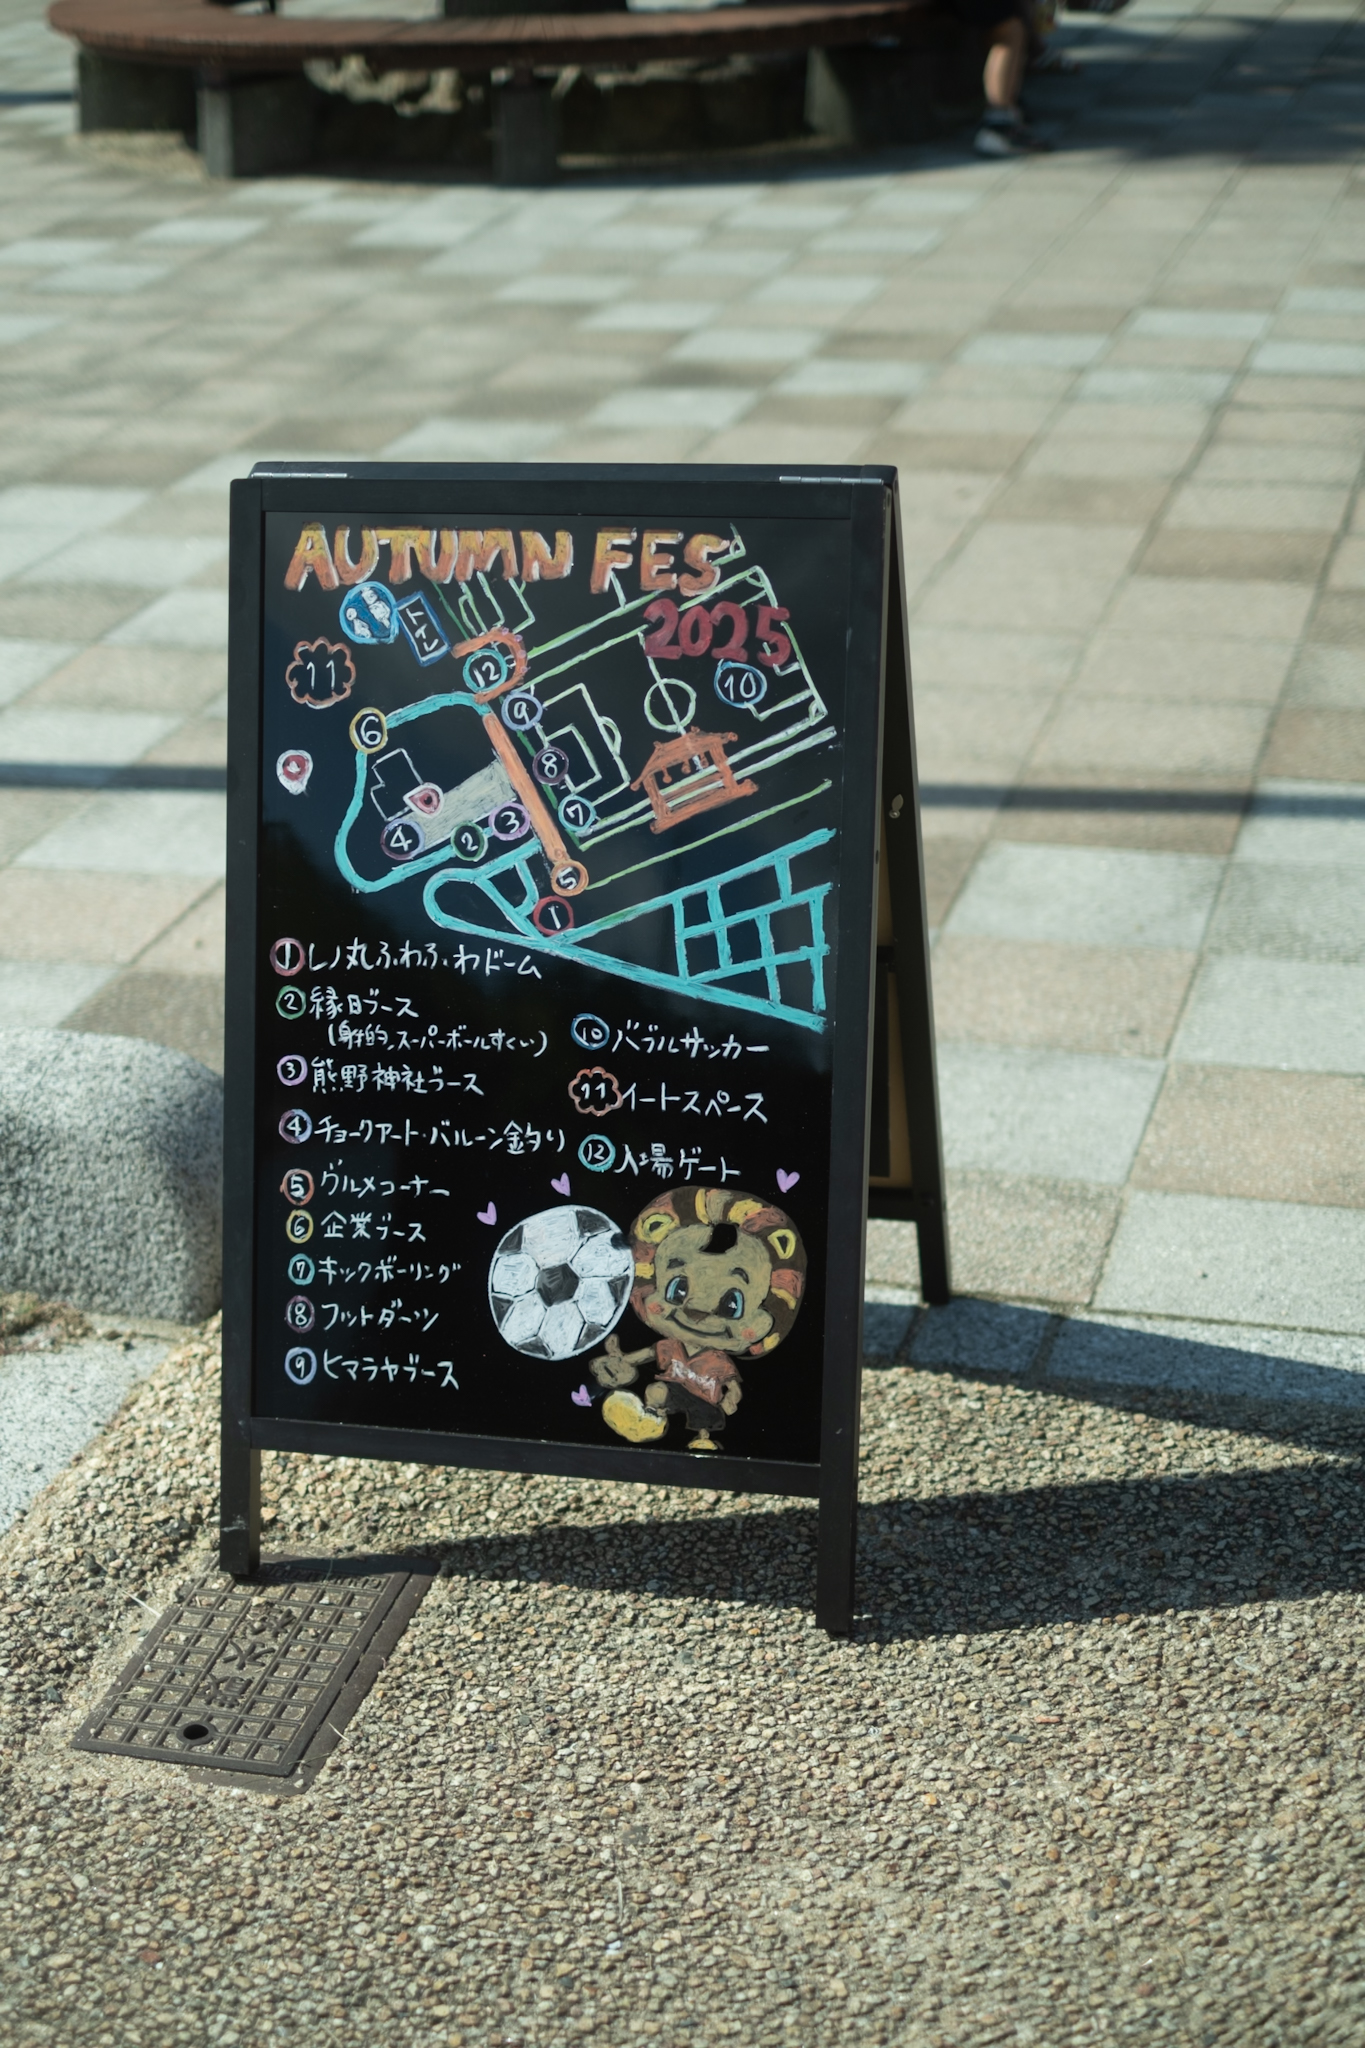 AUTUMN FES
2025
トイレ
12
11
10
9
6
8
7
4
2
3
5
1
①レノ丸ふわふわドーム
②縁日ブース
(射的,スーパーボールすくい)
③熊野神社ブース
④チョークアート・バルーン釣り
⑤グルメコーナー
⑥企業ブース
⑦キックボーリング
⑧フットダーツ
⑨ヒマラヤブース
⑩バブルサッカー
11イートスペース
⑫入場ゲート
Renofa